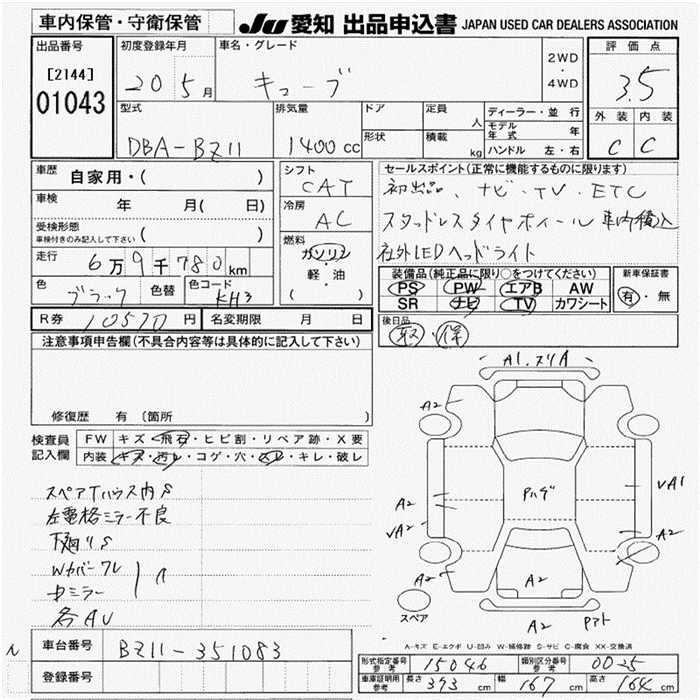 車内保管・守衛保管
JU 愛知 出品申込書 JAPAN USED CAR DEALERS ASSOCIATION
出品番号
[2144]
01043
初度登録年月
20 5月
車名・グレード
キューブ
2WD
・
4WD
評価点
3.5
外装 内装
C C
型式
DBA-BZ11
排気量
1400cc
ドア
形状
定員 人
積載 kg
ディーラー・並行
モデル年式 年
ハンドル 左・右
車歴
自家用・( )
車検 年 月( 日)
受検形態
車検付きのみ記入して下さい ( )
走行 6万9千780km
色 ブラック 色替 色コード KH3
シフト
CAT
冷房
AC
燃料
ガソリン
軽・油
( )
セールスポイント(正常に機能するものに限ります)
初出品、ナビ・TV、ETC
スタッドレスタイヤホイール 車内積込
社外LEDヘッドライト
装備品(純正品に限り○をつけてください)
PS PW エアB AW
SR ナビ TV カワシート
新車保証書
有・無
後日品
取・保
R券 10570円 名変期限 月 日
注意事項申告欄(不具合内容等は具体的に記入して下さい)
修復歴 有(箇所
検査員記入欄
FW キズ・飛石・ヒビ割・リペア跡・X要
内装 キズ・汚レ・コゲ・穴・スレ・キレ・破レ
スペアTハウス内S
左電格ミラー不良
下廻りS
Wカバーワレ
中ミラー
各AU
A1.スリA
A2
A2
A2
A2
A2
A2
A2
Pハゲ
A1
A2
スペア
A-キズ E-エクボ U-凹み W-補修跡 S-サビ C-腐食 XX-交換済
車台番号 BZ11-351083
登録番号
形式指定番号 参考 15046 類別区分番号 参考 0025
車庫証明用 参考 長さ 373cm 幅 167cm 高さ 164cm